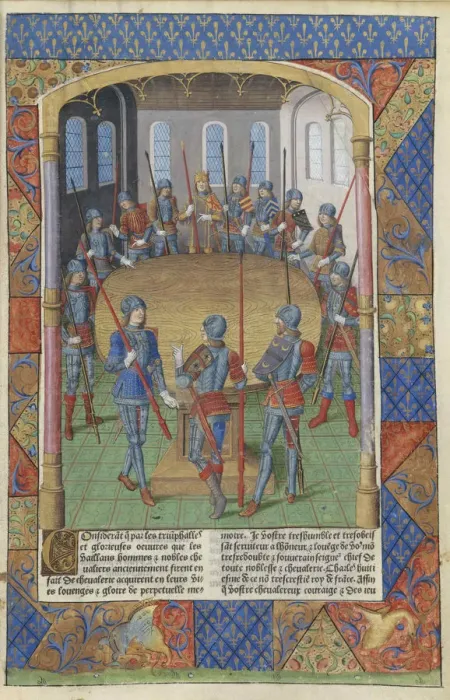 Considerāt q̄ par les triūphalles
et glorieuses oeuures que les
vaillans hommes ⁊ nobles che
ualiers anciennement firent en
fait de cheualerie acquirent en leurs vi
es louenges ⁊ gloire de perpetuelle me
moire. Je vostre treshumble et tresobeis
sāt seruiteur a lhōneur ⁊ louēge de vo' mō
tresredoubte ⁊ souuerain seigne' chief de
toute noblesse ⁊ cheualerie. Charles huiti
esme de ce nō treschrestiē roy de frāce. Affin
q̄ vostre cheualereux couraige ⁊ des